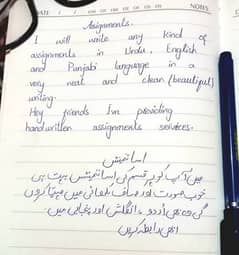 Assignments.
I will write any kind of
assignments in Urdu, English
and Punjabi language in a
very neat and clean (beautiful)
writing.
Hey friends I'm providing
handwritten assignments services.
اسائمنٹس
میں آپ کو ہر قسم کی اسائمنٹس بہت ہی
خوب صورت اور صاف لکھائی میں مہیا کروں
گی وہ بھی اردو، انگلش اور پنجابی میں۔
ابھی رابطہ کریں